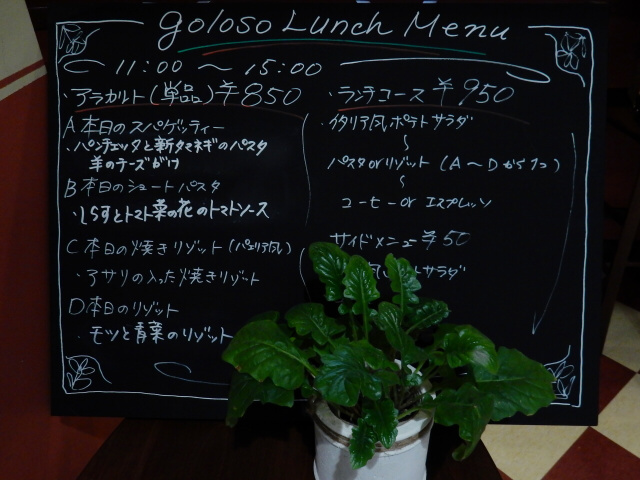 goloso Lunch Menu
11:00 〜 15:00
・アラカルト(単品)¥850
A 本日のスパゲッティー
・パンチェッタと新タマネギのパスタ
羊のチーズがけ
B 本日のショートパスタ
・しらすとトマト菜の花のトマトソース
C 本日の焼きリゾット(パエリア風)
・アサリの入った焼きリゾット
D 本日のリゾット
・モツと青菜のリゾット
・ランチコース ¥950
・イタリア風ポテトサラダ
〜
パスタorリゾット(A〜Dから1つ)
〜
コーヒーorエスプレッソ
サイドメニュー ¥50
風 サラダ